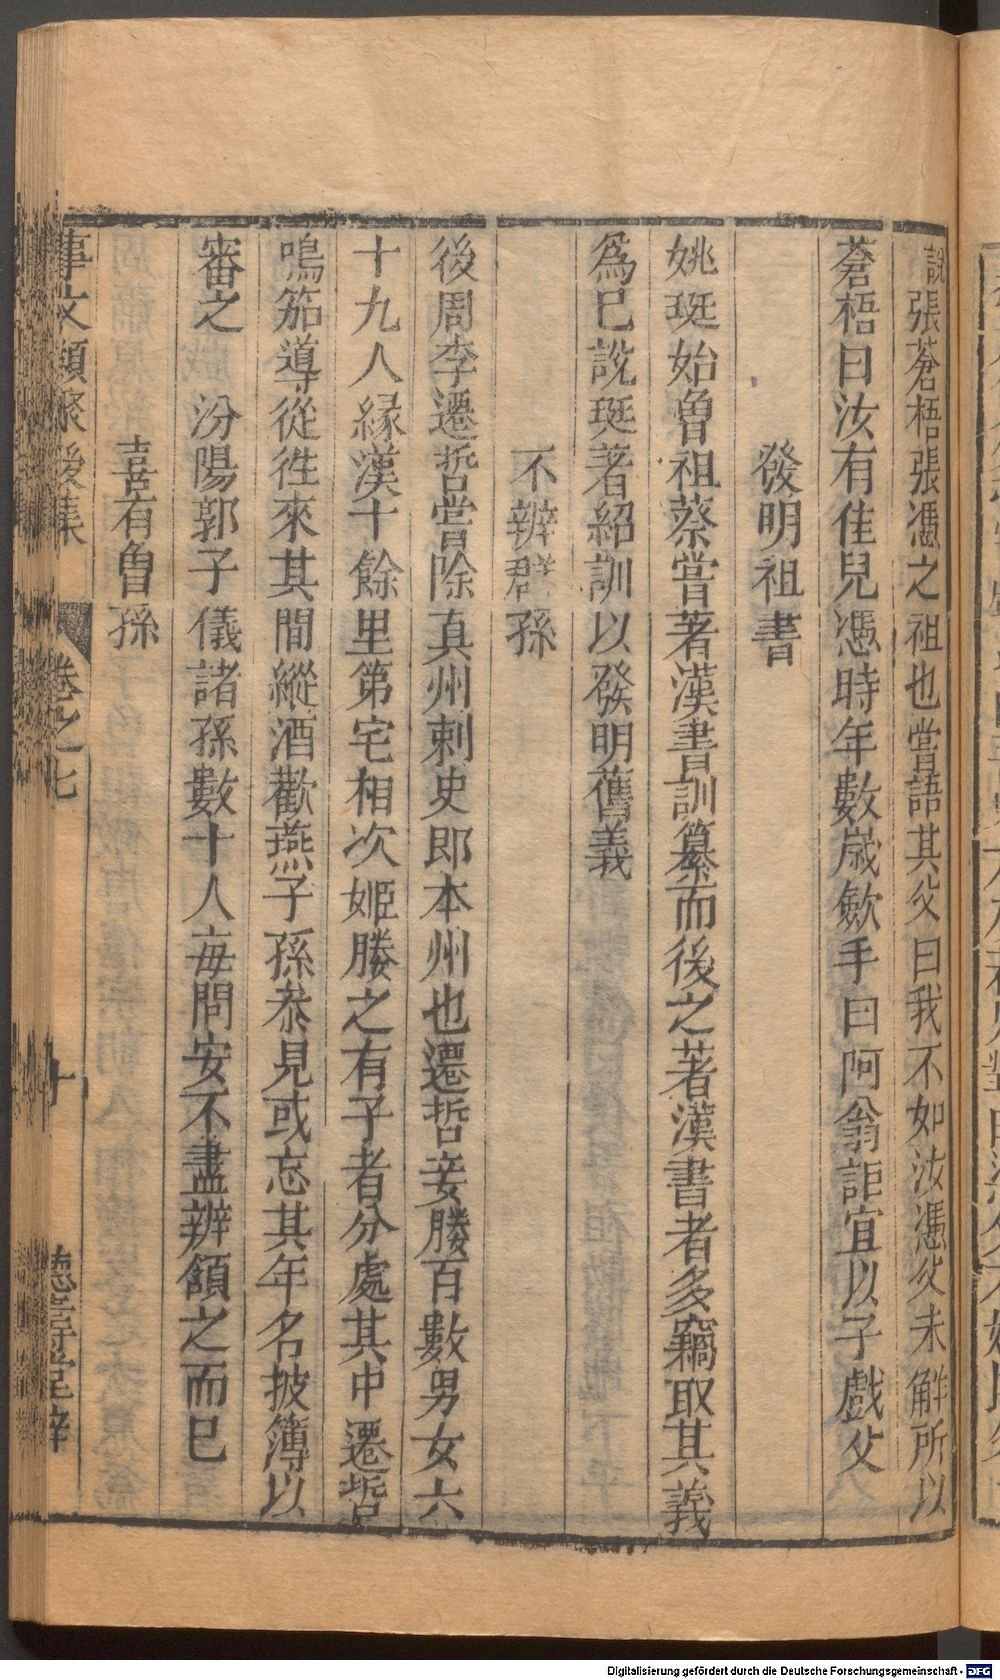 說張蒼梧張憑之祖也嘗語其父曰我不如汝憑父未解所以
蒼梧曰汝有佳兒憑時年數歲歛手曰阿翁詎宜以子戲父
發明祖書
姚珽始曾祖蔡嘗著漢書訓纂而後之著漢書者多竊取其義
爲已說珽著紹訓以發明舊義
不辨群孫
後周李遷哲嘗除真州刺史即本州也遷哲妾媵百數男女六
十九人縁漢十餘里第宅相次姬媵之有子者分處其中遷哲
鳴笳導從徃來其間縱酒歡燕子孫叅見或忘其年名披簿以
審之　汾陽郭子儀諸孫數十人毎問安不盡辨頷之而已
喜有曾孫
事文類聚後集　卷之七　十　德壽堂梓
Digitalisierung gefördert durch die Deutsche Forschungsgemeinschaft - DFG